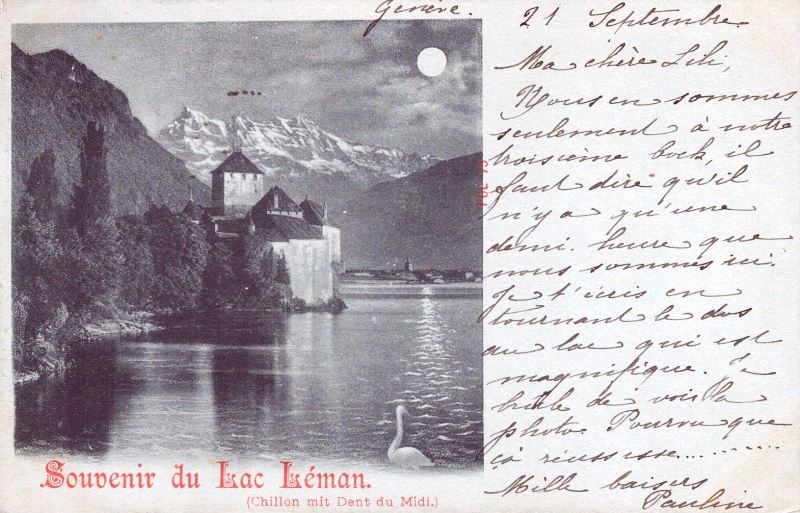 Genève. 21 Septembre.
Ma chère Lili,
Nous en sommes
seulement à notre
troisième bock, il
faut dire qu'il
n'y a qu'une
demi-heure que
nous sommes ici.
Je t'écris en
tournant le dos
au lac qui est
magnifique. Je
brûle de voir la
photo. Pourvu que
ça réussisse..........
Mille baisers
Pauline
Souvenir du Lac Léman.
(Chillon mit Dent du Midi.)